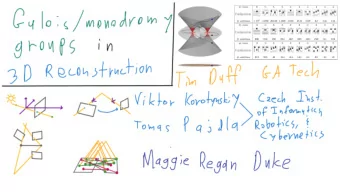 Galois/monodromy
groups in
3D Reconstruction
Tim Duff GA Tech
Viktor Korotynskiy
Tomas Pajdla
Czech Inst.
of Informatics,
Robotics, &
Cybernetics
Maggie Regan Duke